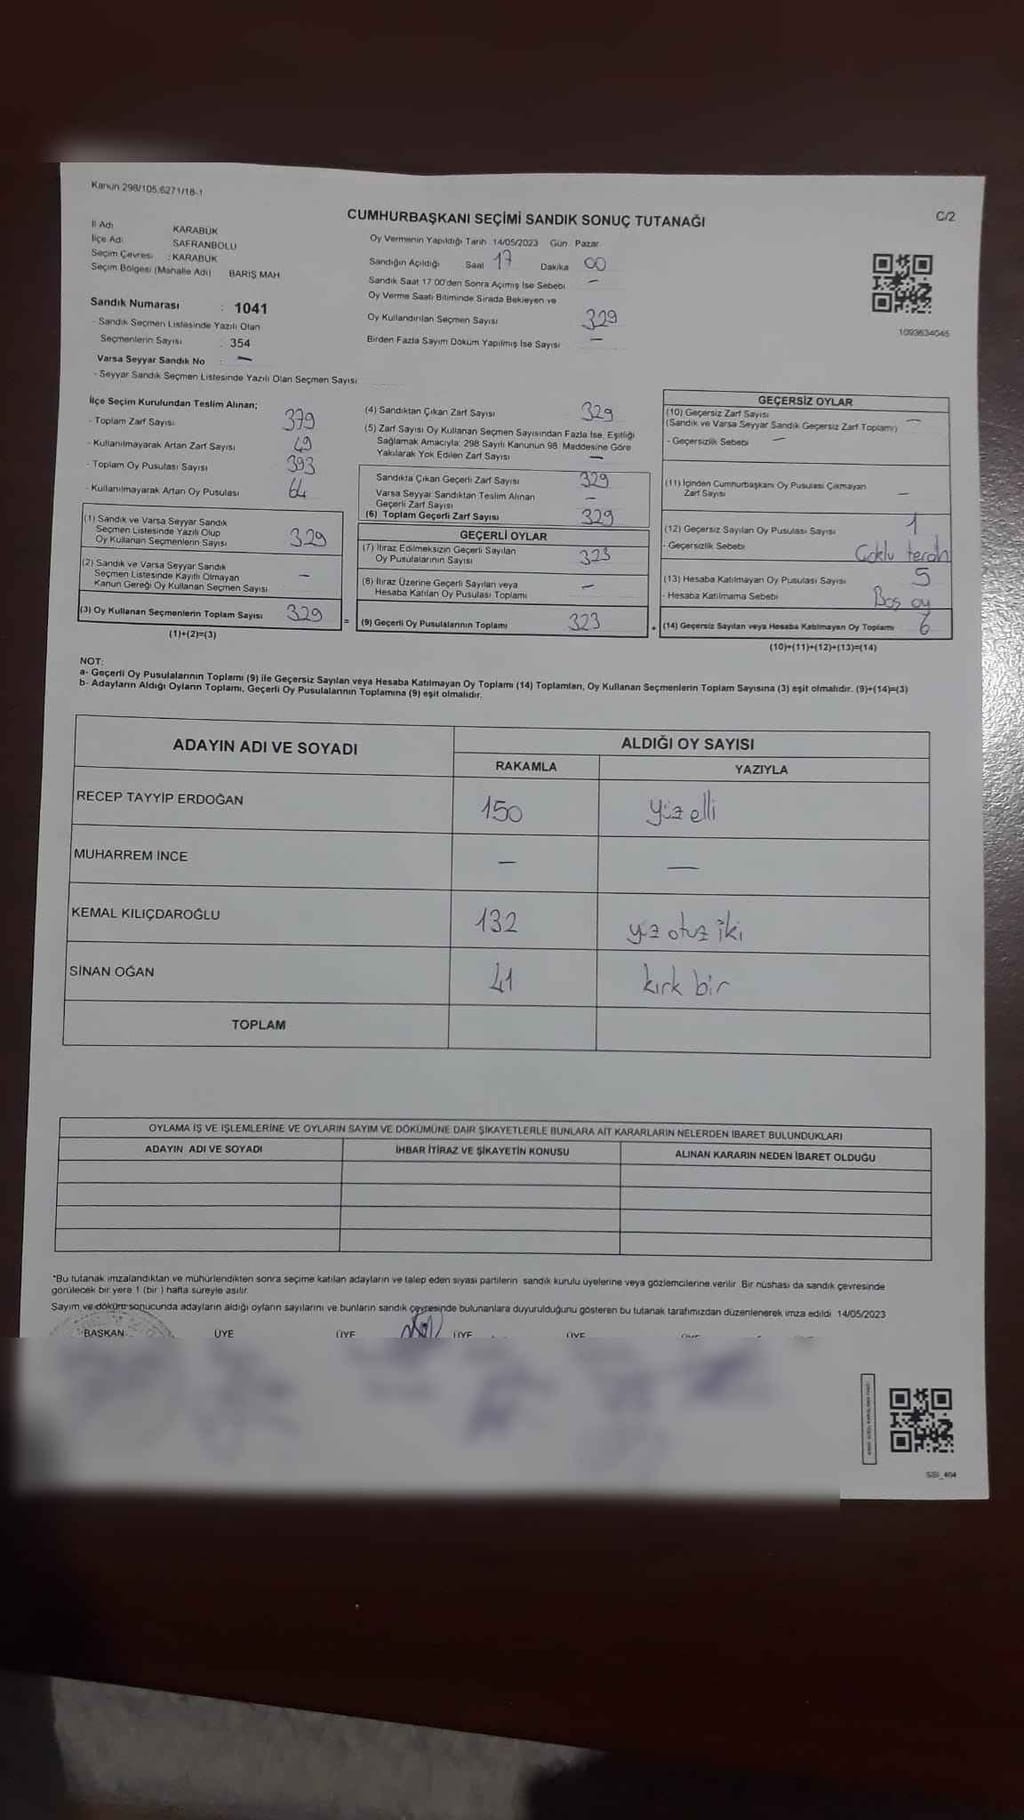 Kanun 298/105,6271/18-1
C/2
CUMHURBAŞKANI SEÇİMİ SANDIK SONUÇ TUTANAĞI
İl Adı KARABÜK
İlçe Adı SAFRANBOLU
Seçim Çevresi : KARABÜK
Seçim Bölgesi (Mahalle Adı) BARIŞ MAH
Sandık Numarası : 1041
- Sandık Seçmen Listesinde Yazılı Olan
Seçmenlerin Sayısı : 354
Varsa Seyyar Sandık No : —
- Seyyar Sandık Seçmen Listesinde Yazılı Olan Seçmen Sayısı
Oy Vermenin Yapıldığı Tarih 14/05/2023 Gün Pazar
Sandığın Açıldığı Saat 17 Dakika 00
Sandık Saat 17 00'den Sonra Açımış İse Sebebi —
Oy Verme Saati Bitiminde Sırada Bekleyen ve
Oy Kullandırılan Seçmen Sayısı 329
Birden Fazla Sayım Döküm Yapılmış İse Sayısı —
1093634045
İlçe Seçim Kurulundan Teslim Alınan;
- Toplam Zarf Sayısı 379
- Kullanılmayarak Artan Zarf Sayısı 49
- Toplam Oy Pusulası Sayısı 393
- Kullanılmayarak Artan Oy Pusulası 64
(1) Sandık ve Varsa Seyyar Sandık
Seçmen Listesinde Yazılı Olup
Oy Kullanan Seçmenlerin Sayısı 329
(2) Sandık ve Varsa Seyyar Sandık
Seçmen Listesinde Kayıtlı Olmayan
Kanun Gereği Oy Kullanan Seçmen Sayısı —
(3) Oy Kullanan Seçmenlerin Toplam Sayısı 329 =
(1)+(2)=(3)
(4) Sandıktan Çıkan Zarf Sayısı 329
(5) Zarf Sayısı Oy Kullanan Seçmen Sayısından Fazla İse, Eşitliği
Sağlamak Amacıyla; 298 Sayılı Kanunun 98. Maddesine Göre
Yakılarak Yok Edilen Zarf Sayısı —
Sandıkta Çıkan Geçerli Zarf Sayısı 329
Varsa Seyyar Sandıktan Teslim Alınan
Geçerli Zarf Sayısı —
(6) Toplam Geçerli Zarf Sayısı 329
GEÇERLİ OYLAR
(7) İtiraz Edilmeksizin Geçerli Sayılan
Oy Pusulalarının Sayısı 323
(8) İtiraz Üzerine Geçerli Sayılan veya
Hesaba Katılan Oy Pusulası Toplamı —
(9) Geçerli Oy Pusulalarının Toplamı 323 +
GEÇERSİZ OYLAR
(10) Geçersiz Zarf Sayısı
(Sandık ve Varsa Seyyar Sandık Geçersiz Zarf Toplamı) —
- Geçersizlik Sebebi —
(11) İçinden Cumhurbaşkanı Oy Pusulası Çıkmayan
Zarf Sayısı —
(12) Geçersiz Sayılan Oy Pusulası Sayısı 1
- Geçersizlik Sebebi Çoklu tercih
(13) Hesaba Katılmayan Oy Pusulası Sayısı 5
- Hesaba Katılmama Sebebi Boş oy
(14) Geçersiz Sayılan veya Hesaba Katılmayan Oy Toplamı 6
(10)+(11)+(12)+(13)=(14)
NOT:
a- Geçerli Oy Pusulalarının Toplamı (9) ile Geçersiz Sayılan veya Hesaba Katılmayan Oy Toplamı (14) Toplamları, Oy Kullanan Seçmenlerin Toplam Sayısına (3) eşit olmalıdır. (9)+(14)=(3)
b- Adayların Aldığı Oyların Toplamı, Geçerli Oy Pusulalarının Toplamına (9) eşit olmalıdır.
ADAYIN ADI VE SOYADI
ALDIĞI OY SAYISI
RAKAMLA YAZIYLA
RECEP TAYYİP ERDOĞAN 150 yüz elli
MUHARREM İNCE — —
KEMAL KILIÇDAROĞLU 132 yüz otuz iki
SİNAN OĞAN 41 kırk bir
TOPLAM
OYLAMA İŞ VE İŞLEMLERİNE VE OYLARIN SAYIM VE DÖKÜMÜNE DAİR ŞİKAYETLERLE BUNLARA AİT KARARLARIN NELERDEN İBARET BULUNDUKLARI
ADAYIN ADI VE SOYADI İHBAR İTİRAZ VE ŞİKAYETİN KONUSU ALINAN KARARIN NEDEN İBARET OLDUĞU
*Bu tutanak imzalandıktan ve mühürlendikten sonra seçime katılan adayların ve talep eden siyasi partilerin sandık kurulu üyelerine veya gözlemcilerine verilir. Bir nüshası da sandık çevresinde
görülecek bir yere 1 (bir ) hafta süreyle asılır.
Sayım ve dökum sonucunda adayların aldığı oyların sayılarını ve bunların sandık çevresinde bulunanlara duyurulduğunu gösteren bu tutanak tarafımızdan düzenlenerek imza edildi. 14/05/2023
BAŞKAN ÜYE ÜYE ÜYE ÜYE
SSI_404